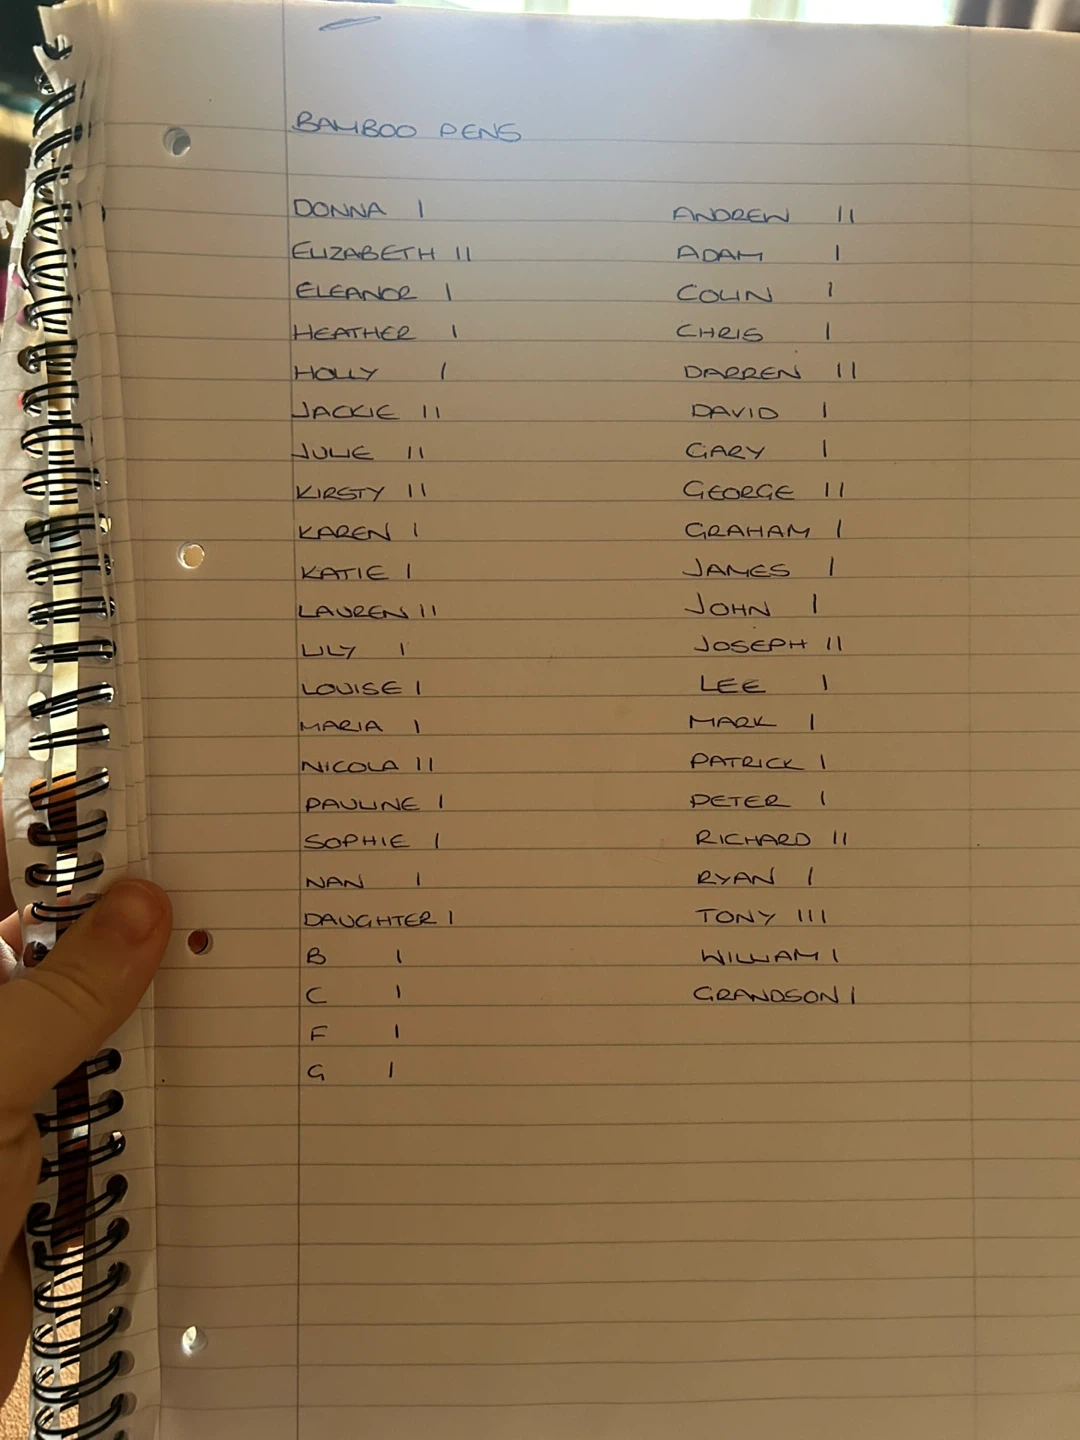 BAMBOO PENS
DONNA I
ELIZABETH II
ELEANOR I
HEATHER I
HOLLY I
JACKIE II
JULIE II
KIRSTY II
KAREN I
KATIE I
LAUREN II
LILY I
LOUISE I
MARIA I
NICOLA II
PAULINE I
SOPHIE I
NAN I
DAUGHTER I
B I
C I
F I
G I
ANDREW II
ADAM I
COLIN I
CHRIS I
DARREN II
DAVID I
GARY I
GEORGE II
GRAHAM I
JAMES I
JOHN I
JOSEPH II
LEE I
MARK I
PATRICK I
PETER I
RICHARD II
RYAN I
TONY III
WILLIAM I
GRANDSON I